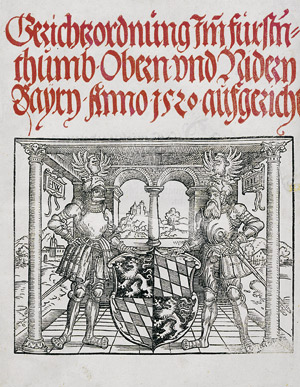 Gerichtzordnũng Im fürstn-
thumb Obern vnd Nidern
Bayrn Anno 1520 aufgericht